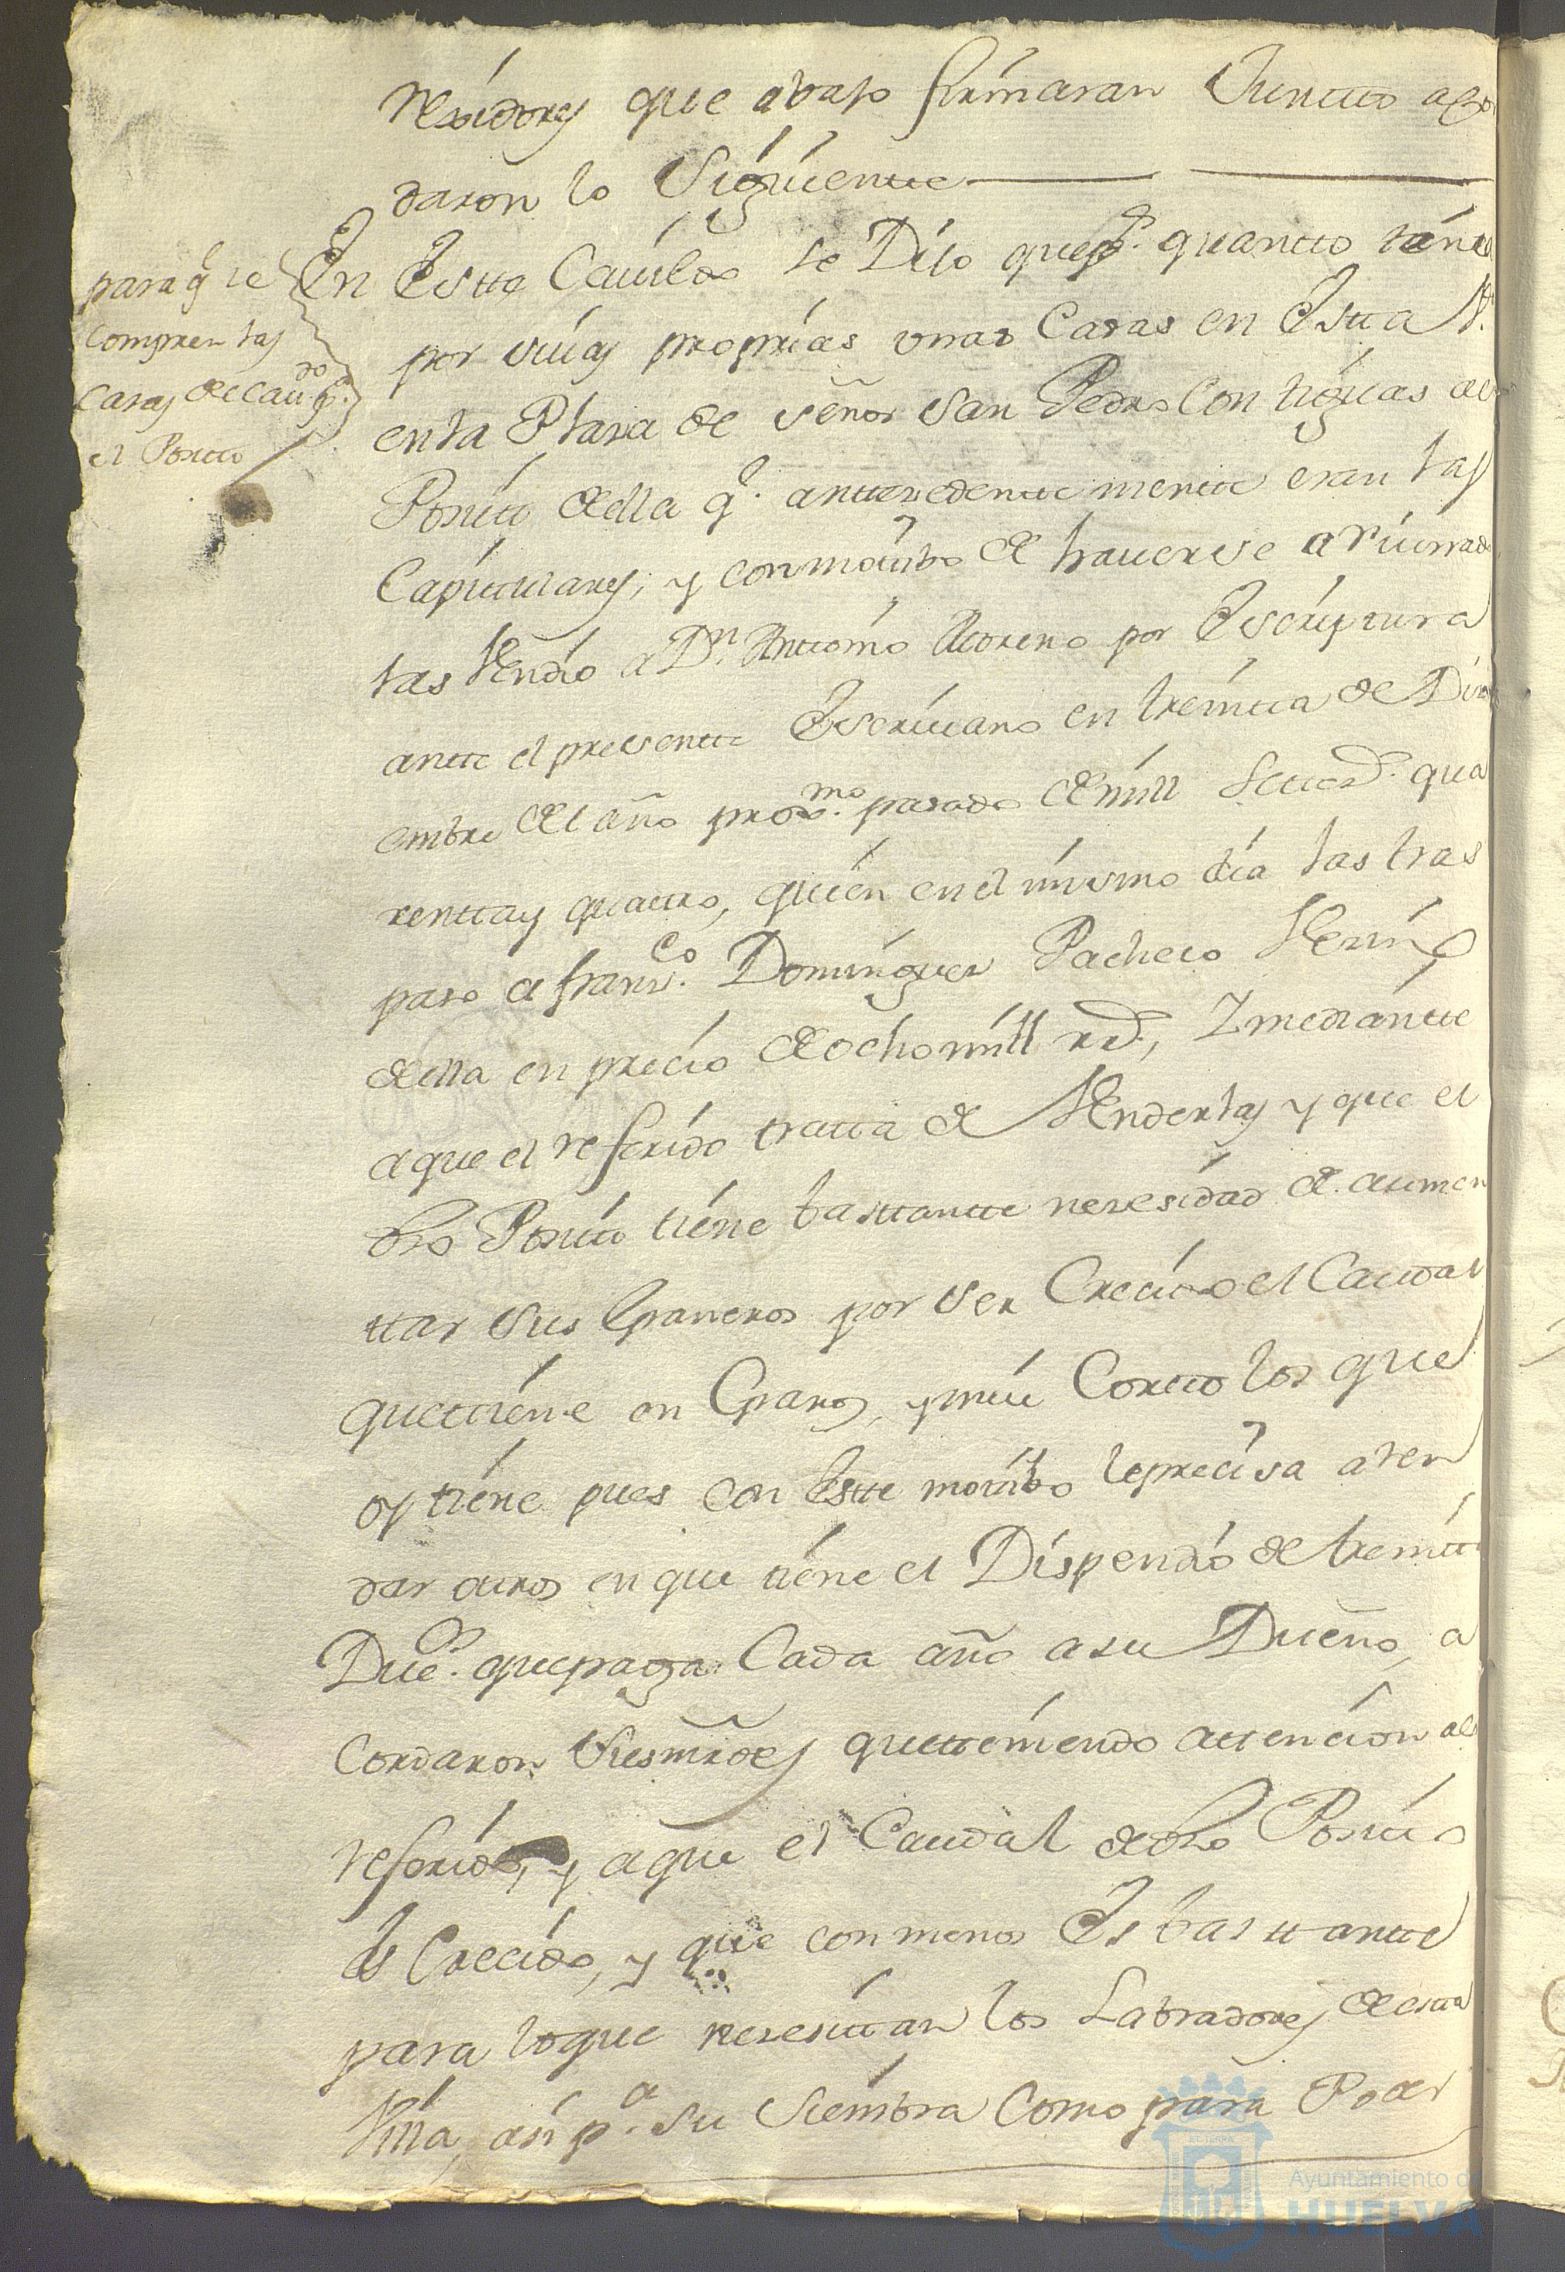 rexidores que abajo firmaran Juntto acor
daron lo Siguiente
para q se
compren las
Casas de Cau.do p.a
el Positto
En Estte Cauildo se Dijo que p.r quantto tenia
por suias proprias unas Casas en Estta V.a
en la Plasa de señor San Pedro Contiguas al
Positto della q.e anttezedenttementte eran las
Capitulares, y con motibo de hauerse arruinado
las Vendio a D.n Anttonio Moreno por Escriptura
antte el presentte Escriuano en treintta de Dizi
embre del año prox.mo pasado de mill Settez.s qua
renttay quattro, quien en el mismo dia las tras
paso a fran.co Dominguez Pacheco Vezino
della en precio de ocho mill r.s, Y mediantte
a que el referido tratta de Venderlas y que el
dho Positto tiene basttantte nezesidad de aumen
ttar sus Graneros por ser Crecido el Caudal
quettiene en Granos, y mui Cortto los que
oy tiene pues con Estte motibo le precisa aren
dar otros en que tiene el Dispendio de treintta
Duc.s que paga Cada año a su Dueño, a
Cordaron Susmrdes quetteniendo attencion al
referido, y a que el Caudal de dho Positto
es Crecido, y que con menos Es basttantte
para loque nezesittan los Labradores de estta
Villa, asi p.a su Siembra Como para Poder
Ayuntamiento de
HUELVA